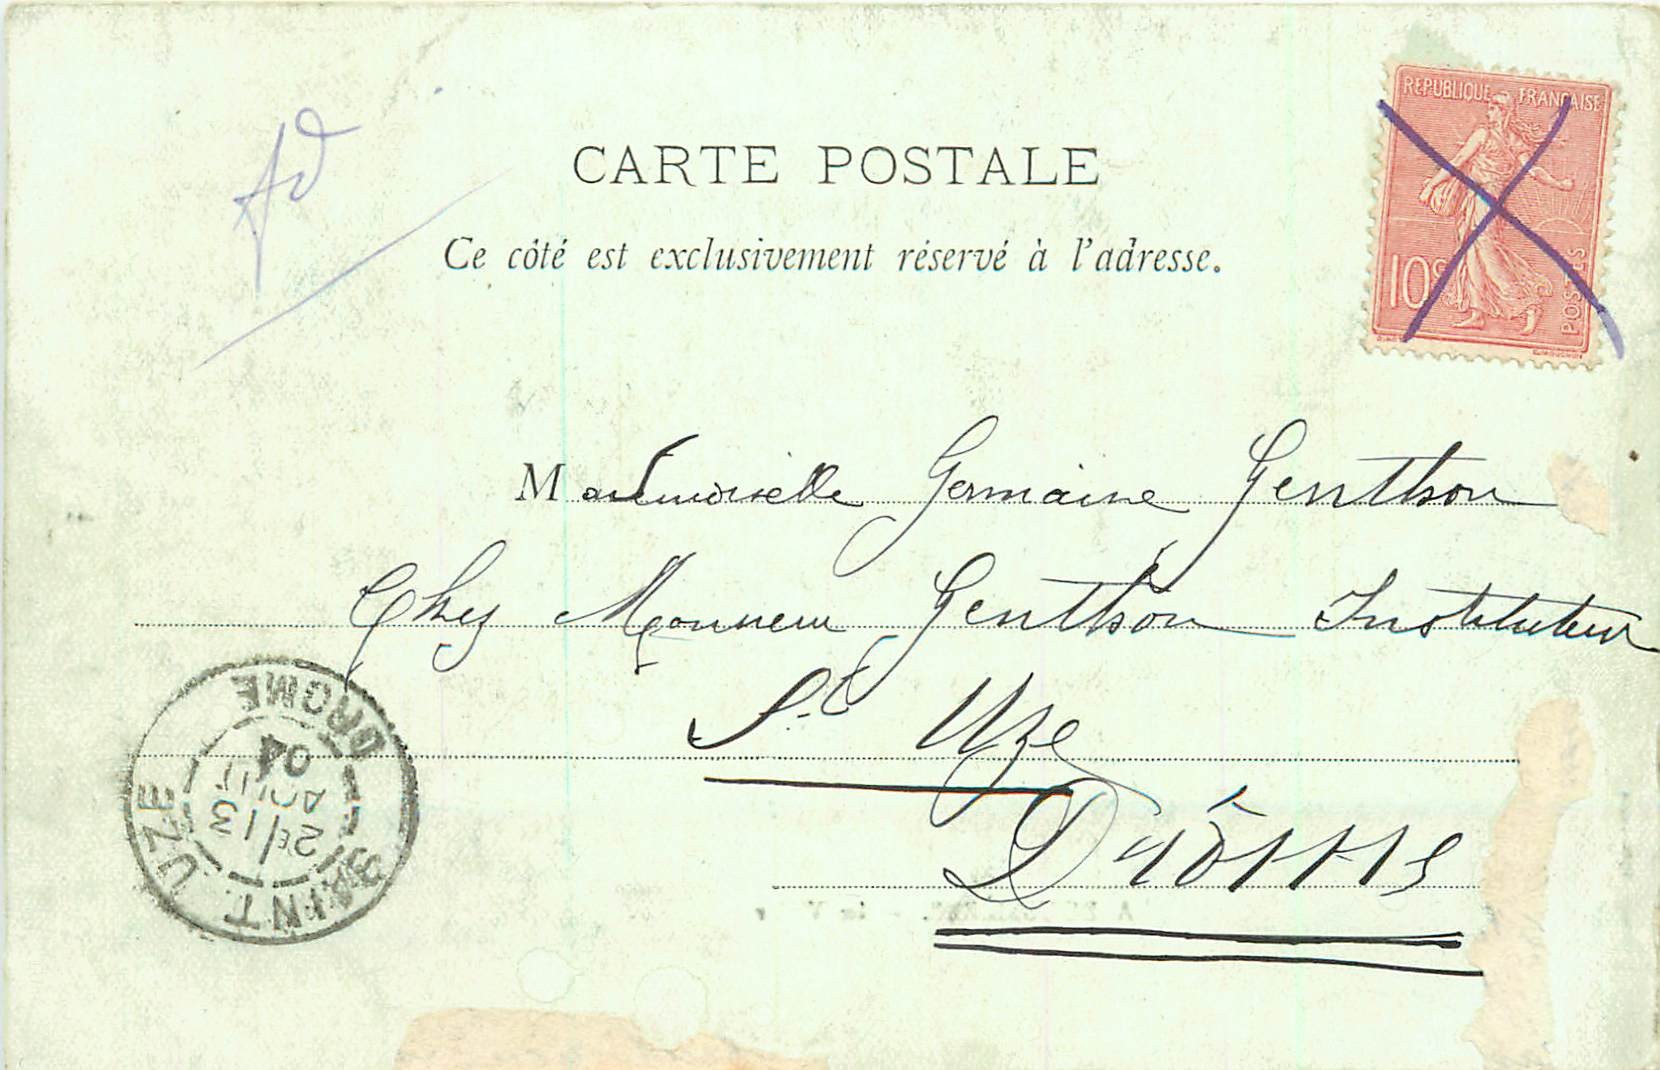 Ad
CARTE POSTALE
Ce côté est exclusivement réservé à l'adresse.
REPUBLIQUE FRANÇAISE
10c
POSTES
Mademoiselle Germaine Genthon
Chez Monsieur Genthon Instituteur
St Uze
Drôme
SAINT UZE
2E/13
AOUT
04
DROME